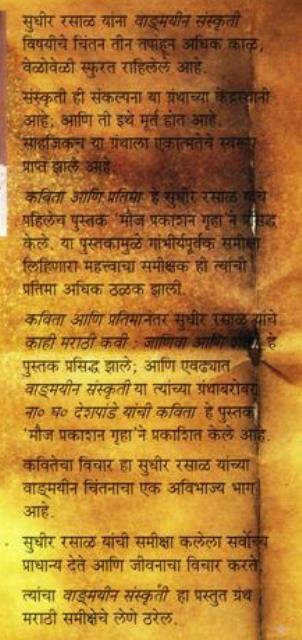 सुधीर रसाळ यांना वाङ्मयीन संस्कृती
विषयीचे चिंतन तीन तपाहून अधिक काळ,
वेळोवेळी स्फुरत राहिलेले आहे.
संस्कृती ही संकल्पना या ग्रंथाच्या केंद्रस्थानी
आहे; आणि ती इथे मूर्त होत आहे.
साहजिकच या ग्रंथाला एकात्मतेचे स्वरूप
प्राप्त झाले आहे
कविता आणि प्रतिमा हे सुधीर रसाळ यांचे
पहिलेच पुस्तक ‘मौज प्रकाशन गृहा’ने प्रसिद्ध
केले. या पुस्तकामुळे गांभीर्यपूर्वक समीक्षा
लिहिणारा महत्त्वाचा समीक्षक ही त्यांची
प्रतिमा अधिक ठळक झाली.
कविता आणि प्रतिमानंतर सुधीर रसाळ यांचे
काही मराठी कवी : जाणिवा आणि शैली हे
पुस्तक प्रसिद्ध झाले; आणि एवढ्यात
वाङ्मयीन संस्कृती या त्यांच्या ग्रंथाबरोबर
ना० घ० देशपांडे यांची कविता हे पुस्तक
‘मौज प्रकाशन गृहा’ने प्रकाशित केले आहे.
कवितेचा विचार हा सुधीर रसाळ यांच्या
वाङ्मयीन चिंतनाचा एक अविभाज्य भाग
आहे.
सुधीर रसाळ यांची समीक्षा कलेला सर्वोच्च
प्राधान्य देते आणि जीवनाचा विचार करते.
त्यांचा वाङ्मयीन संस्कृती हा प्रस्तुत ग्रंथ
मराठी समीक्षेचे लेणे ठरेल.